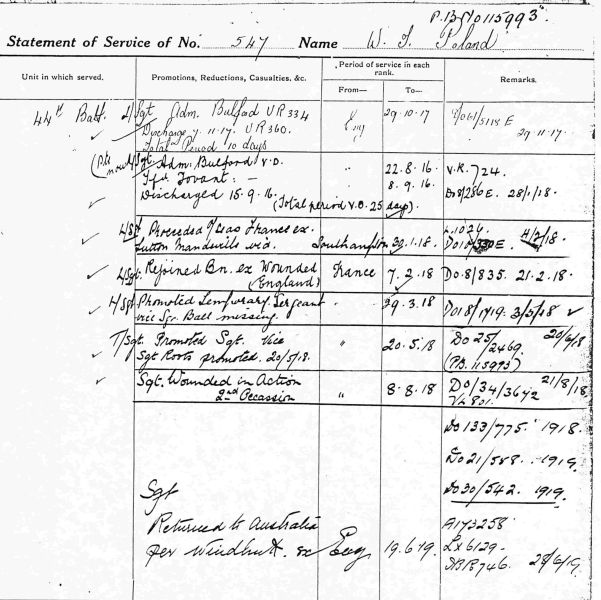 P.B. No 115993
Statement of Service of No. 547 Name W. J. Poland
Unit in which served. Promotions, Reductions, Casualties, &c. Period of service in each rank. Remarks.
From— To—
44th Batt. Sgt Adm. Bulford VR 334 Eng 29.10.17
Discharge 7.11.17. VR 360. 29.11.17.
Total Period 10 days
Sgt. Adm. Bulford V.D. " 22.8.16. V.R. 724.
Tfd. Tovant: — 8.9.16.
Discharged 15.9.16. 28/1/18.
(Total period V.D. 25 days)
L/Sgt Proceeded O/seas France ex. L.1024.
Sutton Mandeville via. Southampton 30.1.18. 4/2/18.
L/Sgt. Rejoined Bn. ex Wounded France 7.2.18 Do.8/835. 21.2.18.
(England)
L/Sgt Promoted Temporary Sergeant " 29.3.18 Do18/1719. 3/5/18
vice Sgt. Ball missing.
T/Sgt. Promoted Sgt. Vice " 20.5.18 Do 25/2469 20/6/18
Sgt Roots promoted. 20/5/18. (P.B. 115993)
Sgt. Wounded in Action " 8.8.18 Do/34/3642 21/8/18
2nd Occassion
Do 133/775. 1918.
Do 21/588. 1919.
Do 30/542. 1919.
Sgt
Returned to Australia A173258
per ex Eng 19.6.19. Lx 6129.
28/6/19.